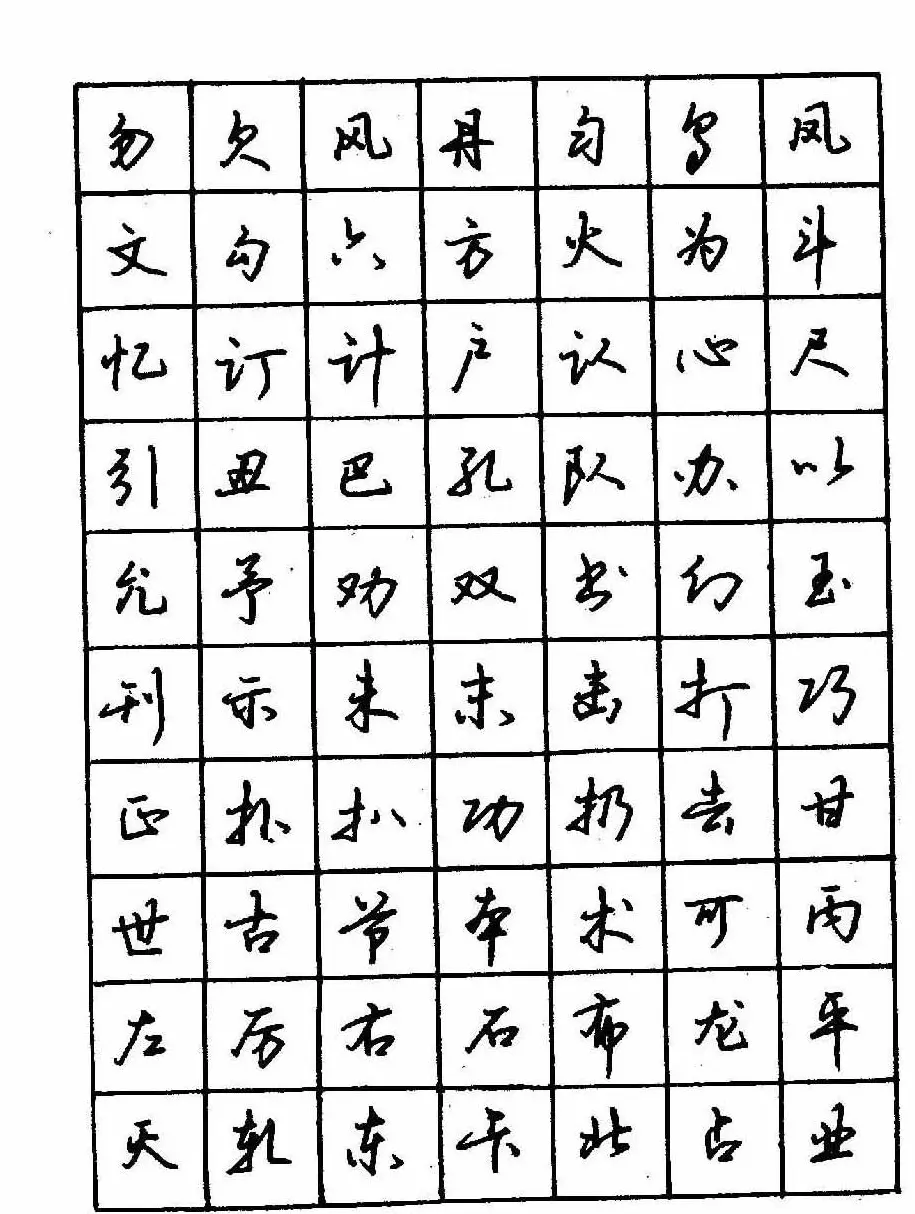 勿欠风丹匀乌凤
文勾六方火为斗
忆订计户认心尺
引丑巴孔队办以
允予劝双书幻玉
刊示未末击打巧
正扑扒功扔去甘
世古节本术可丙
左厉右石布龙平
灭轧东卡北占业